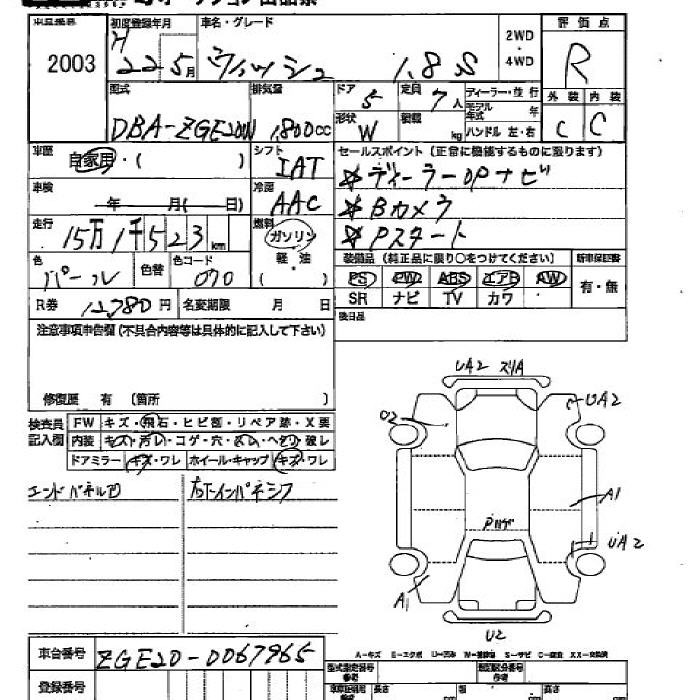 車両番号 初度登録年月 車名・グレード 2WD・4WD 評価点
2003 H 22 5月 ウィッシュ 1.8S R
型式 排気量 ドア 5 定員 7人 ディーラー・並行 モデル年式 年 外装 内装
DBA-ZGE20W 1,800cc 形状 W 積載 kg ハンドル 左・右 C C
車歴 自家用・( ) シフト IAT セールスポイント(正常に機能するものに限ります)
☆ディーラーOPナビ
車検 年 月( 日) 冷房 AAC ☆Bカメラ
走行 15万1千523km 燃料 ガソリン ☆Pスタート
軽油
( )
色 パール 色替 色コード 070 装備品(純正品に限り○をつけてください) 新車保証書
PS PW ABS エアB AW 有・無
R券 12,780円 名変期限 月 日 SR ナビ TV カワ
注意事項申告欄(不具合内容等は具体的に記入して下さい) 後日品
修復歴 有 (箇所 )
検査員記入欄 FW キズ・飛石・ヒビ割・リペア跡・X要
内装 キズ・汚レ・コゲ・穴・
ドアミラー キズ・ワレ ホイール・キャップ キズ・ワレ
エンドパネル凹 右下インパネシワ
UA2 スリA
U2 UA2
A1
Pハゲ
UA2
A1
U2
A-キズ E-エクボ U-凹み
車台番号 ZGE20-0067965 型式指定番号 参考 類別区分番号 参考
登録番号 長さ 幅 高さ